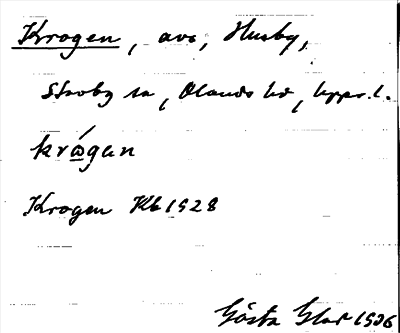 Krogen, avs, Husby,
Skoby sn, Olands hd, Upps. l.
krώgan
Krogen Kb 1928
Gösta Glad 1936